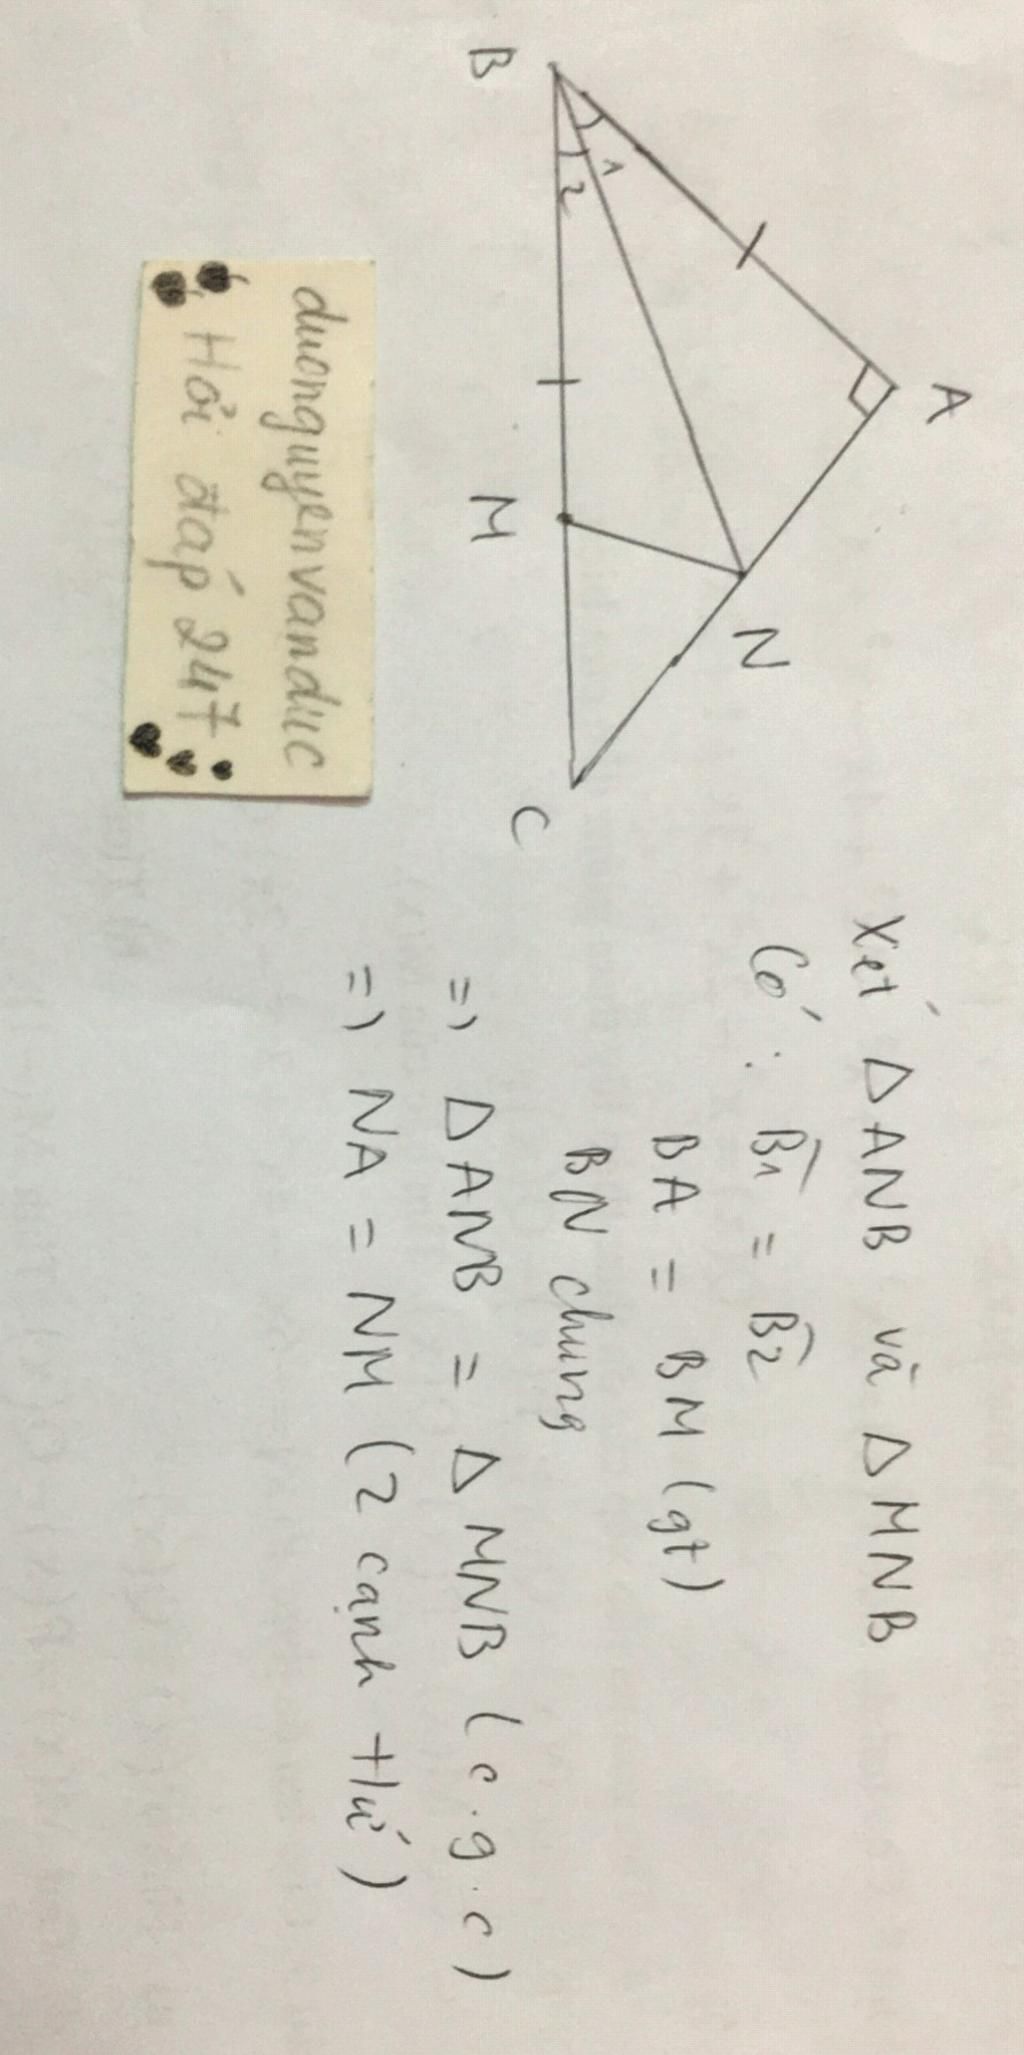 A
B
1
2
N
M
C
duonguyenvanduc
Hỏi đáp 247
Xét ΔANB và ΔMNB
Có : B̂1 = B̂2
BA = BM (gt)
BN chung
=> ΔANB = ΔMNB (c.g.c)
=> NA = NM (2 cạnh t/ứ)